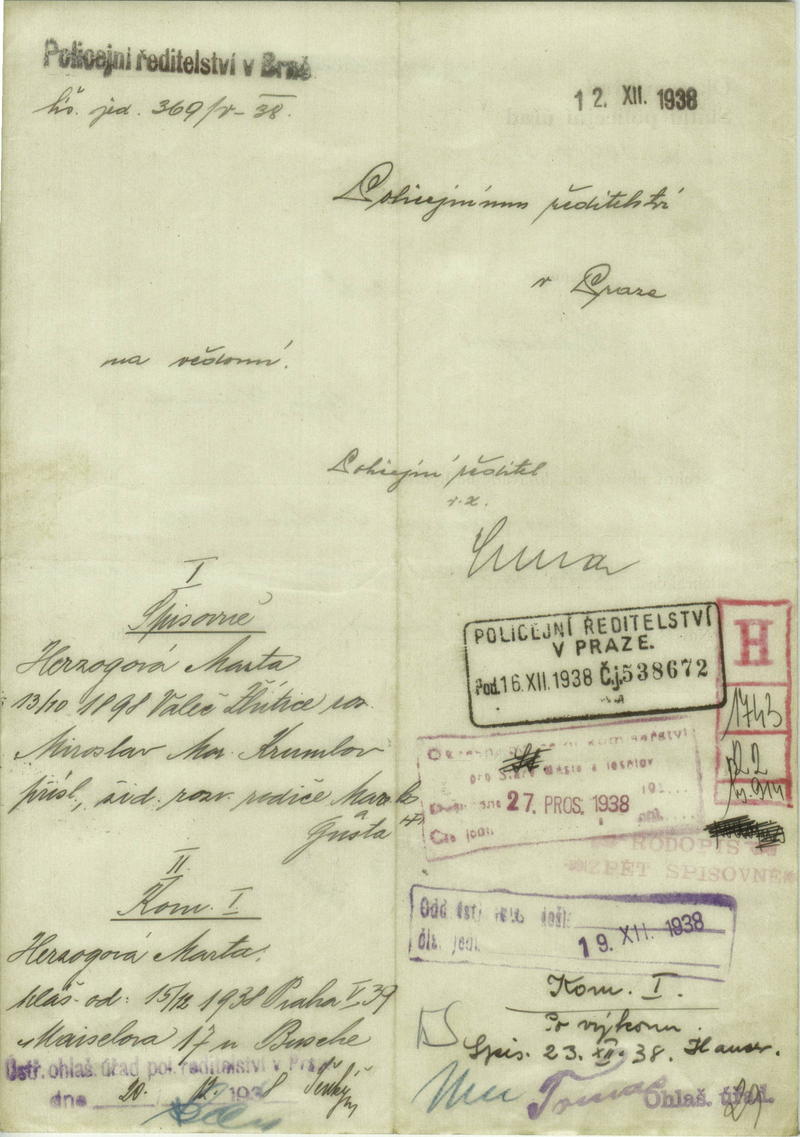 Policejní ředitelství v Brně
čís. jed. 369/v-38.
12. XII. 1938
Policejnímu ředitelství
v Praze
na vědomí.
Policejní ředitel
v.z.
I
Spisovně
Herzogová Marta
13/10 1898 Valeč Žlutice
Miroslav Mor. Krumlov
přísl., žid. rozv. rodiče
a
Gusta
II
Kom. I
Herzogová Marta.
hláš. od: 15/12 1938 Praha V. 39
Maiselova 17 u Busche
Ústř. ohlaš. úřad pol. ředitelství v Pra
dne 20. 12. 1938
POLICEJNÍ ŘEDITELSTVÍ
V PRAZE.
Pod. 16. XII. 1938 Čj. 538672
H
1743
22
914
pro Staré město a Josefov
27. PROS. 1938
Čís. jedn.
RODOPIS
ZPĚT SPISOVNĚ
19. XII. 1938
Čís. jedn.
Kom. I.
Po výkonu
Spis. 23. XII. 38. Hauser.
Ohlaš. úřad.
29